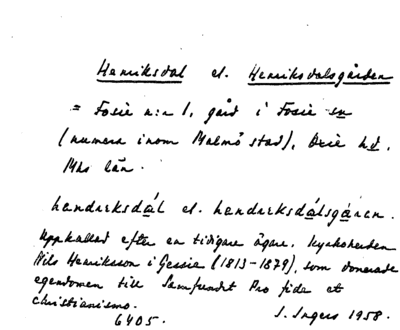 Henriksdal el. Henriksdalsgården
= Fosie n:r 1, gård i Fosie sn
(numera inom Malmö stad), Oxie hd,
Mhs län.
hendriksdál el. hendriksdálsgáren.
Uppkallad efter en tidigare ägare, kyrkoherden
Nils Henriksson i Gessie (1813-1879), som donerade
egendomen till Samfundet Pro fide et
christianismo.
6405. I. Ingers 1958.